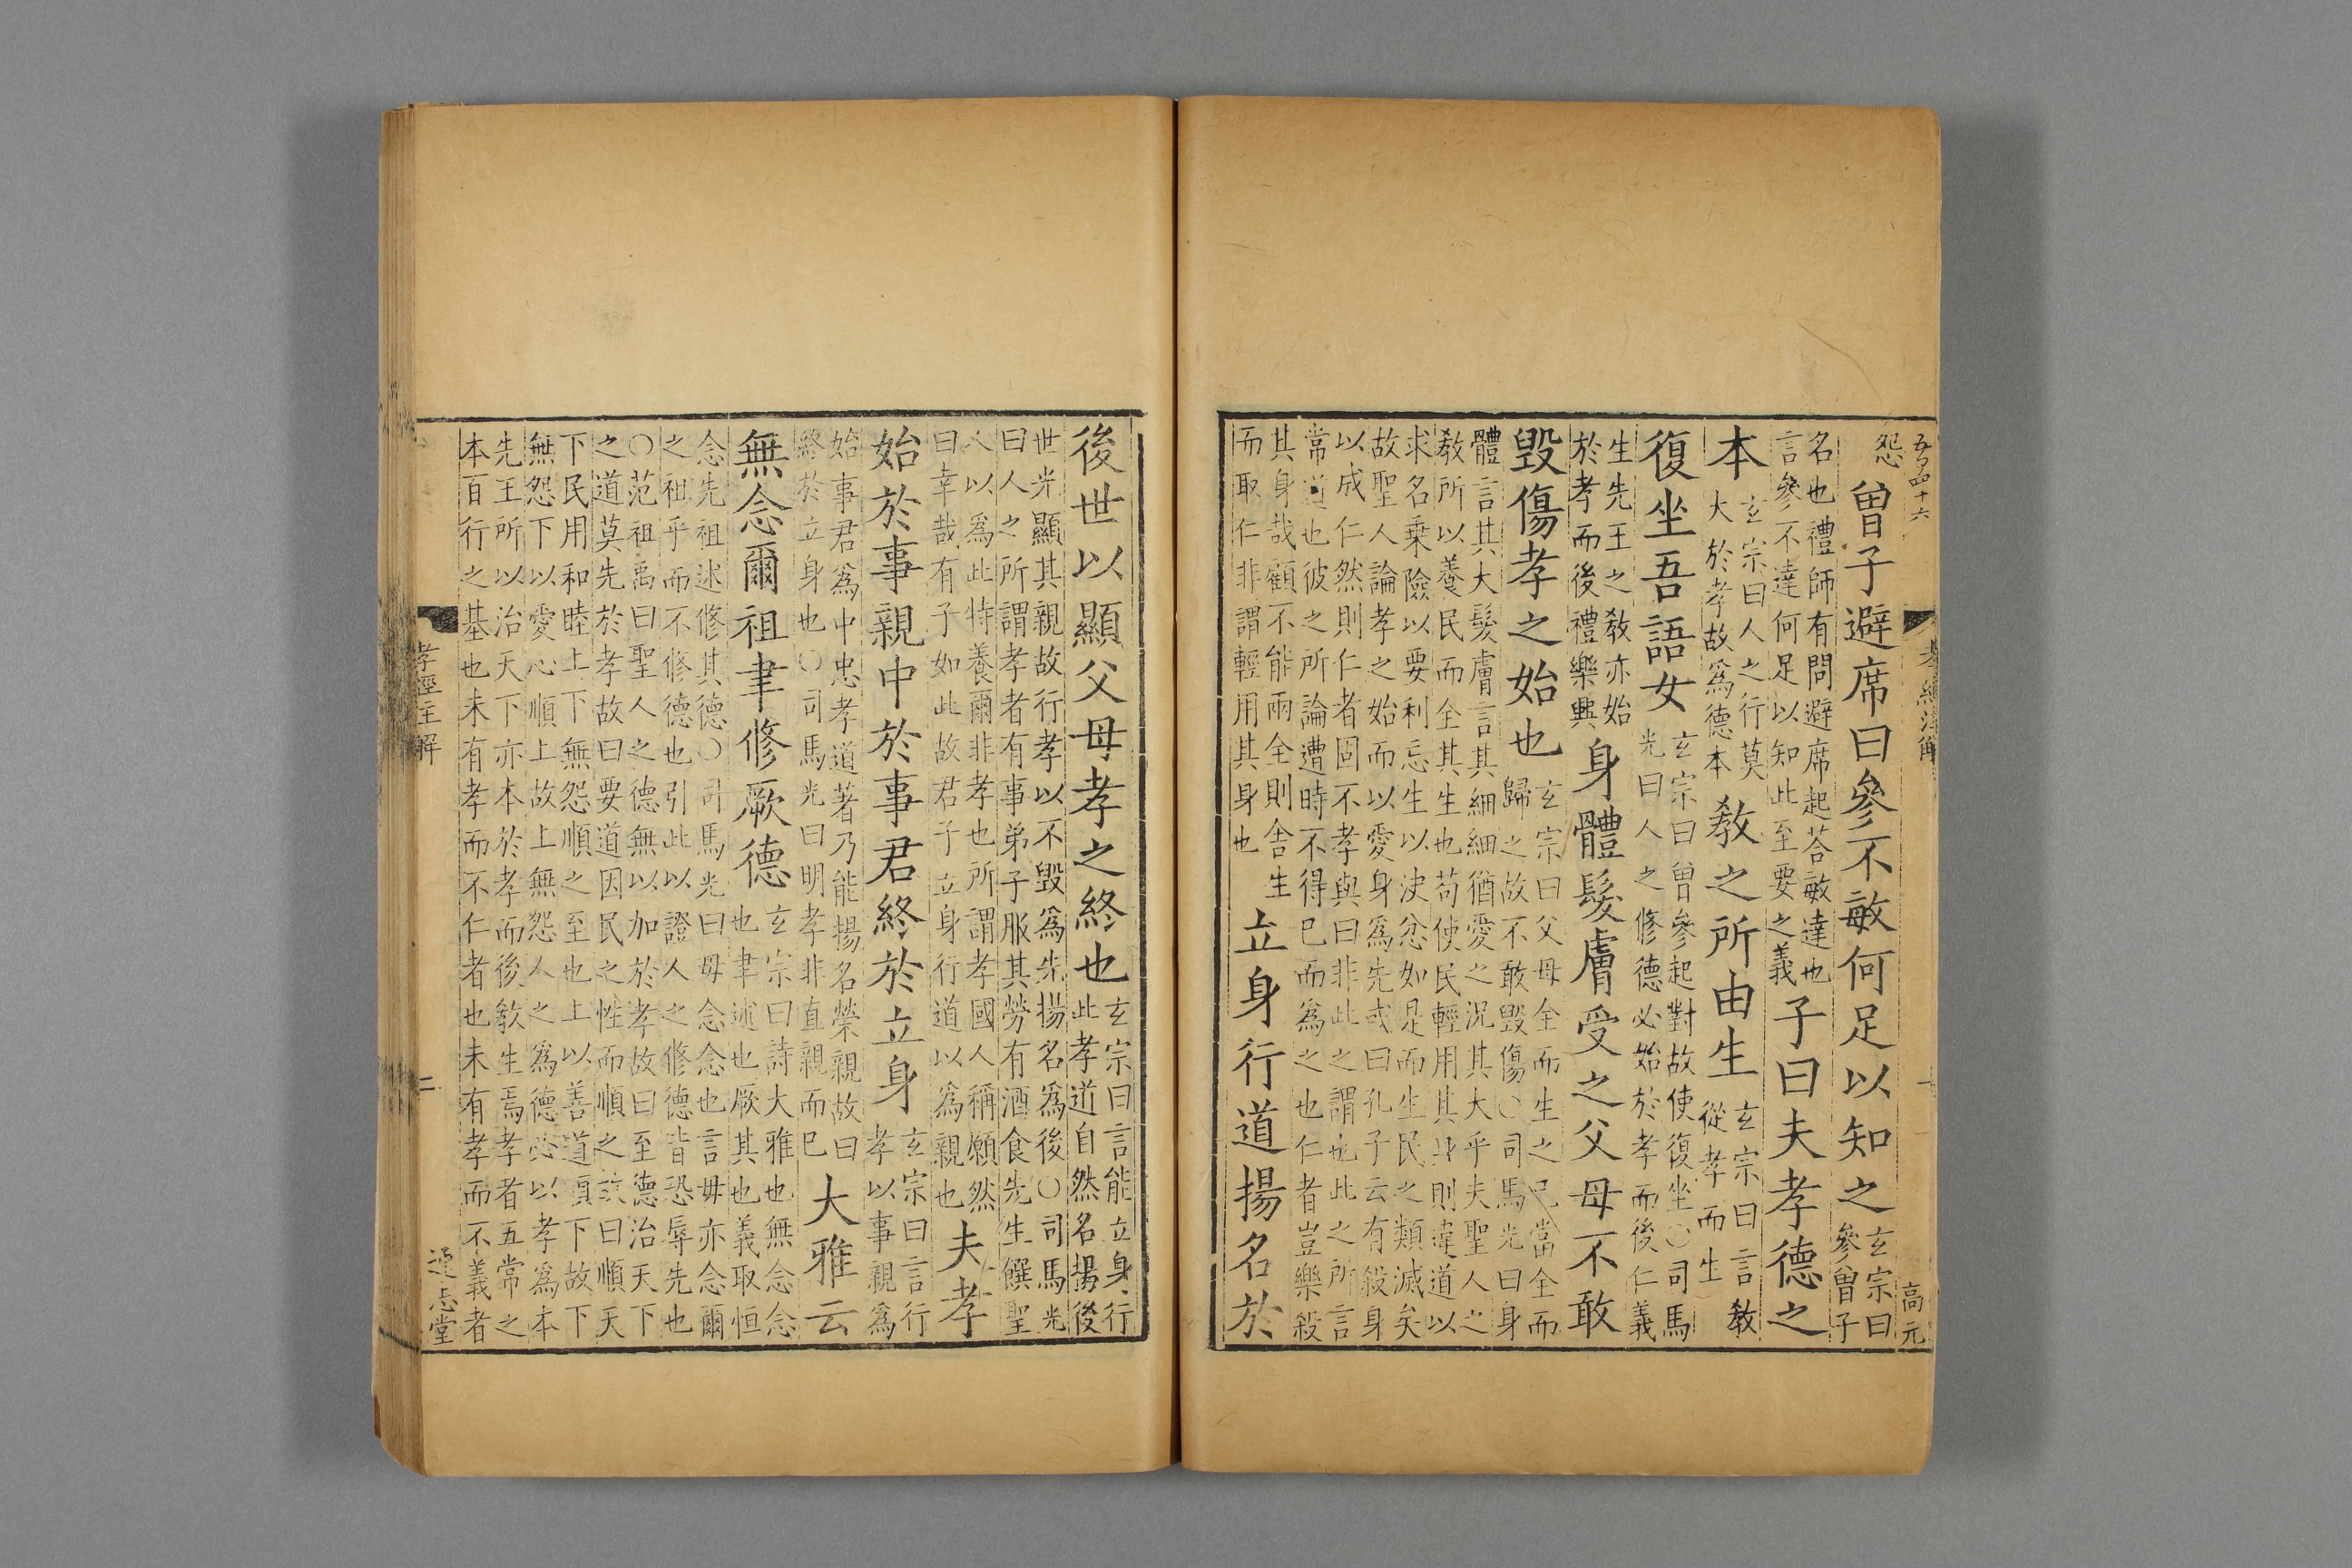 五百四十六
孝經注解
高元
怨
曾子避席曰參不敏何足以知之
玄宗曰
參曾子
名也禮師有問避席起荅敏達也
言參不達何足以知此至要之義
子曰夫孝德之
本
玄宗曰人之行莫
大於孝故爲德本
教之所由生
玄宗曰言教
從孝而生
復坐吾語女
玄宗曰曾參起對故使復坐○司馬
光曰人之修德必始於孝而後仁義
生先王之教亦始
於孝而後禮樂興
身體髮膚受之父母不敢
毀傷孝之始也
玄宗曰父母全而生之已當全而
歸之故不敢毀傷○司馬光曰身
體言其大髮膚言其細細猶愛之況其大乎夫聖人之
教所以養民而全其生也苟使民輕用其身則違道以
求名乗險以要利忘生以決忿如是而生民之類滅矣
故聖人論孝之始而以愛身爲先或曰孔子云有殺身
以成仁然則仁者固不孝與曰非此之謂也此之所言
常道也彼之所論遭時不得已而爲之也仁者豈樂殺
其身哉顧不能兩全則舍生
而取仁非謂輕用其身也
立身行道揚名於
後世以顯父母孝之終也
玄宗曰言能立身行
此孝道自然名揚後
世光顯其親故行孝以不毀爲先揚名爲後○司馬光
曰人之所謂孝者有事弟子服其勞有酒食先生饌聖
人以爲此特養爾非孝也所謂孝國人稱願然
曰幸哉有子如此故君子立身行道以爲親也
夫孝
始於事親中於事君終於立身
玄宗曰言行
孝以事親爲
始事君爲中忠孝道著乃能揚名榮親故曰
終於立身也○司馬光曰明孝非直親而已
大雅云
無念爾祖聿修厥德
玄宗曰詩大雅也無念念
也聿述也厥其也義取恒
念先祖述修其德○司馬光曰毋念念也言毋亦念爾
之祖乎而不修德也引此以證人之修德皆恐辱先也
○范祖禹曰聖人之德無以加於孝故曰至德治天下
之道莫先於孝故曰要道因民之性而順之故曰順天
下民用和睦上下無怨順之至也上以善道順下故下
無怨下以愛心順上故上無怨人之爲德必以孝爲本
先王所以治天下亦本於孝而後教生焉孝者五常之
本百行之基也未有孝而不仁者也未有孝而不義者
孝經注解
二
通志堂